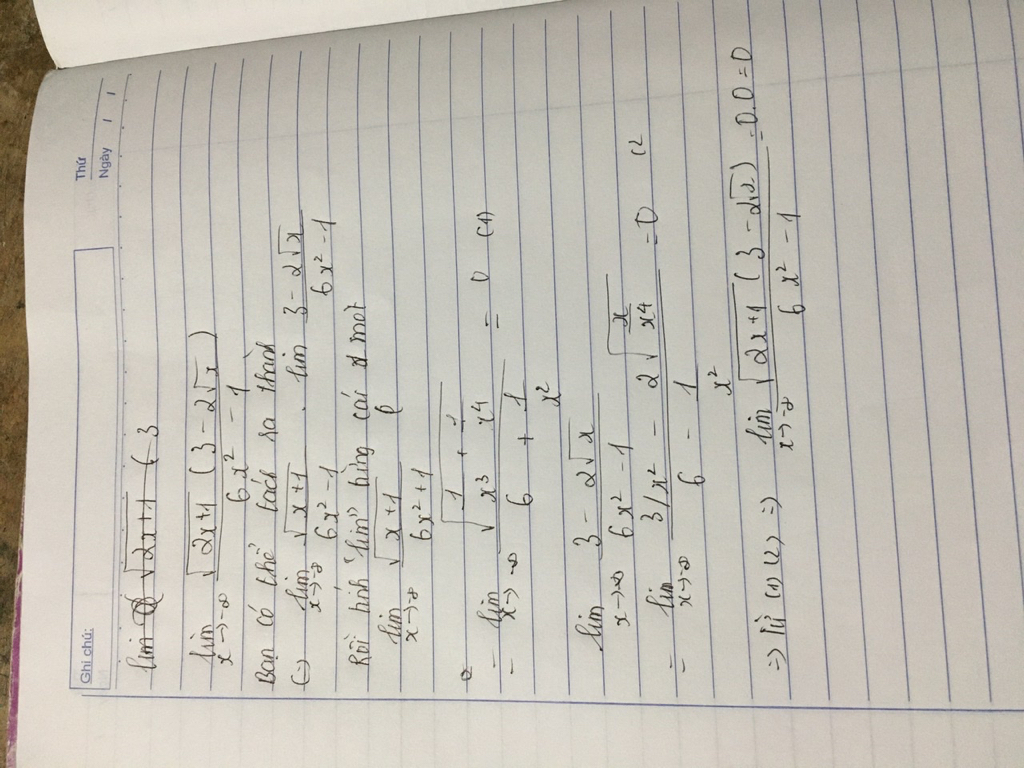 Ghi chú:
Thứ
Ngày / /
lim √(2x+1) (3
lim x→-∞ √(2x+1) (3 - 2√x) / (6x² - 1)
Bạn có thể tách ra thành
(=) lim x→-∞ √(x+1) / (6x² - 1) . lim (3 - 2√x) / (6x² - 1)
Rồi tính "lim" từng cái một
lim x→-∞ √(x+1) / (6x² + 1)
= lim x→-∞ √(1/x³ + 1/x⁴) / (6 + 1/x²) = 0 (1)
lim x→-∞ (3 - 2√x) / (6x² - 1)
= lim x→-∞ (3/x² - 2√(x/x⁴)) / (6 - 1/x²) = 0 (2
=) Từ (1) (2) =) lim x→-∞ √(2x+1) (3 - 2√x) / (6x² - 1) = 0.0 = 0